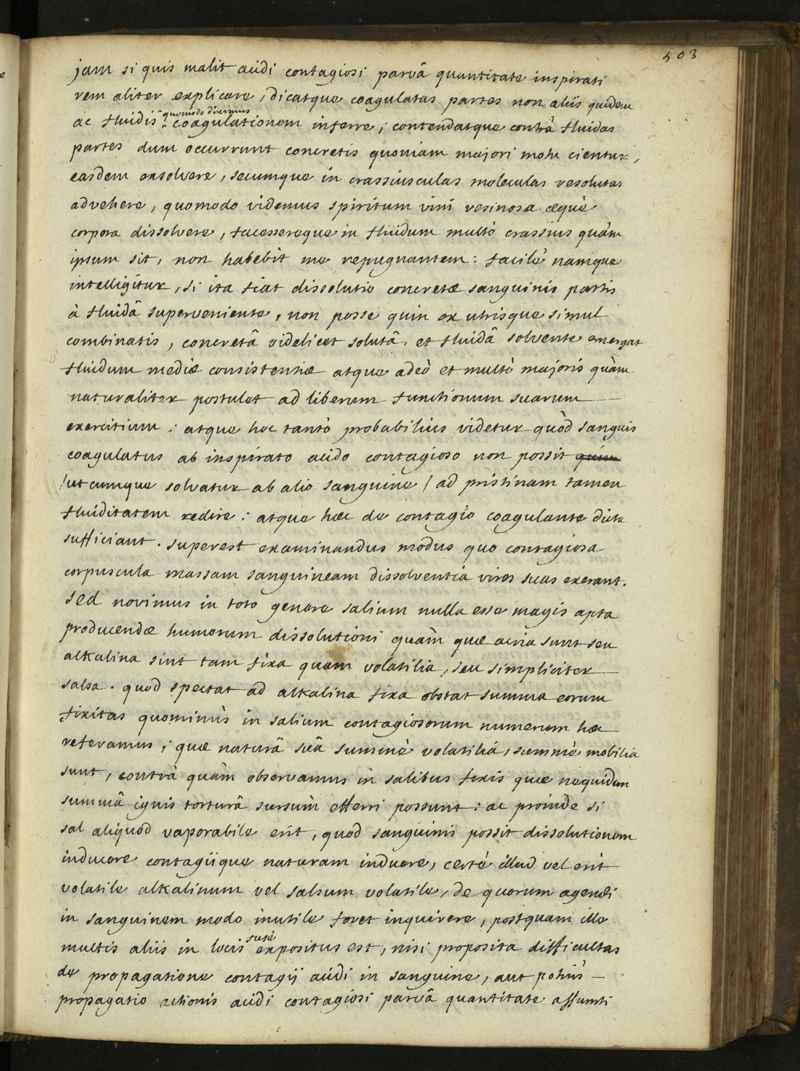 503
jam si quis malit acidi contagiosi parvâ quantitate inspirati
rem aliter explicare, dicatque coagulatas partes non aliis quidem
quomodo diximus
ac fluidis coagulationem inferre; contendatque contrà fluidas
partes dum occurrunt concretis quoniam majori motu cientur,
easdem exsolvere, secumque in crassiusculas moleculas resolutas
advehere, quomodo videmus spiritum vini resinosa æquè
corpora dissolvere, facessereque in fluidum multò crassius quàm
ipsum sit, non habebit me repugnantem: facilè namque
intelligitur, si ita fiat dissolutio concretæ sanguinis partis
à fluidâ superveniente, non posse quin ex utrisque simul
combinatis, concretâ videlicet solutâ, et fluidâ solvente emergat
fluidum mediæ consistentiæ atque adeò et multò majoris quàm
naturaliter postulet ad liberum functionum suarum
exercitium: atque hoc tantò probabilius videtur quòd sanguis
coagulatus ab inspirato acido contagioso non possit quin
/utcumque solvatur ab alio sanguine/ ad pristinam tamen
fluiditatem redire: atque hæc de contagio coagulante dicta
sufficiant. superest examinandus modus quo contagiosa
corpuscula massam sanguineam dissolventia vires suas exerant.
sed novimus in toto genere salium nulla esse magis apta
producendæ humorum dissolutioni quàm quæ acria sunt seu
alkalina sint tam fixa quam volatilia, seu simpliciter
salsa. quod spectat ad alkalina fixa obstat summa eorum
fixitas quominùs in salium contagiosorum numerum hæc
referamus; quæ naturâ suâ summè volatilia, summè mobilia
sunt, contrà quàm observamus in salibus fixis quæ nequidem
summâ ignis torturâ sursùm efferri possunt: ac proinde si
sal aliquod vaporabile erit, quod sanguinis possit dissolutionem
inducere contagiique naturam induere, certè illud vel erit
volatile alkalinum vel salsum volatile, de quorum agendi
in sanguinem modo inutile foret inquirere, postquam ille
multis aliis in locis fusè expositus est, nisi proposita difficultas
de propagatione contagij acidi in sanguine, aut potiùs
propagatio actionis acidi contagiosi parvâ quantitate assumti